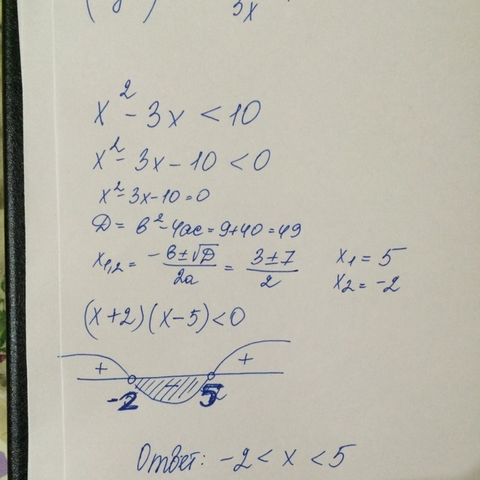 3x
x² - 3x < 10
x² - 3x - 10 < 0
x² - 3x - 10 = 0
D = b² - 4ac = 9 + 40 = 49
x₁,₂ = (-b ± √D) / 2a = (3 ± 7) / 2
x₁ = 5
x₂ = -2
(x + 2)(x - 5) < 0
+ - +
-2 5
Ответ: -2 < x < 5